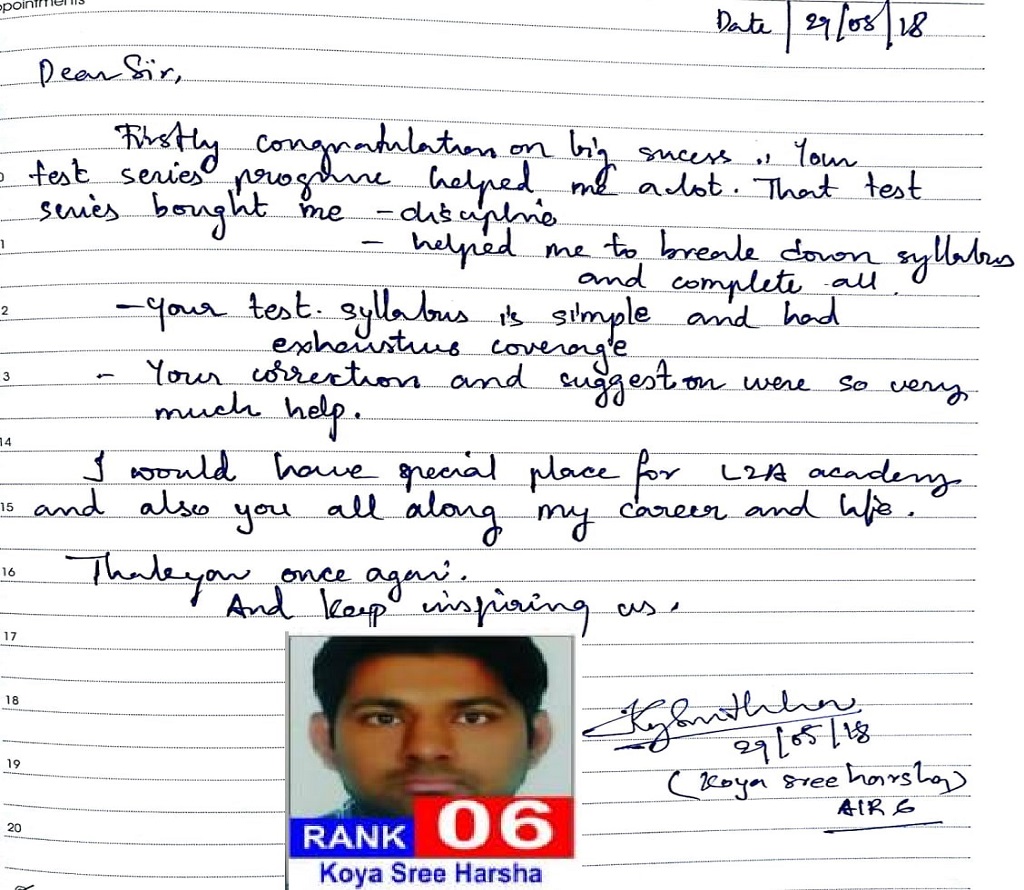 ppointments
Date | 29/05/18
Dear Sir,
Firstly congratulation on big sucess .. Your
test series progrme helped me a lot. That test
series bought me - discipline
1
- helped me to break down syllabus
and complete all.
2
- your test. syllabus is simple and had
exhaustive coverage
3
- Your correction and suggestion were so very
much help.
14
I would have special place for L2A academy
15 and also you all along my career and life.
16 Thankyou once again.
And keep inspiring us.
17
18
29/05/18
19
(Koya sree harsha)
AIR 6
20
RANK 06
Koya Sree Harsha